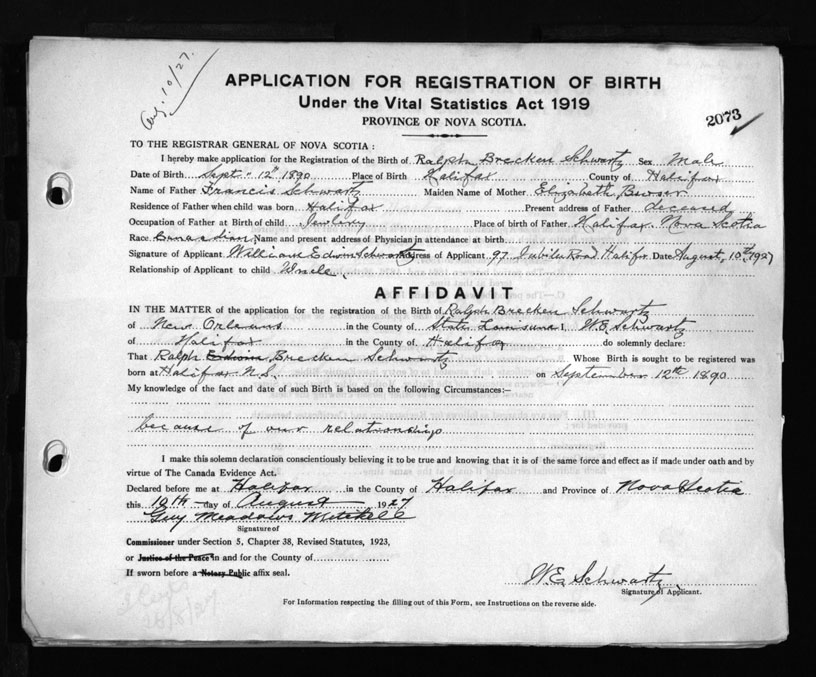 Aug. 10/27.
APPLICATION FOR REGISTRATION OF BIRTH
Under the Vital Statistics Act 1919
2073
PROVINCE OF NOVA SCOTIA.
TO THE REGISTRAR GENERAL OF NOVA SCOTIA :
I hereby make application for the Registration of the Birth of Ralph Brecken Schwartz Sex Male
Date of Birth Sept. 12th 1890 Place of Birth Halifax County of Halifax
Name of Father Francis Schwartz Maiden Name of Mother Elizabeth
Residence of Father when child was born Halifax Present address of Father deceased
Occupation of Father at Birth of child Place of birth of Father Halifax Nova Scotia
Race Canadian Name and present address of Physician in attendance at birth
Signature of Applicant William Edwin Schwartz Address of Applicant 97 Jubilee Road Halifax Date August, 10th, 1927
Relationship of Applicant to child Uncle.
AFFIDAVIT
IN THE MATTER of the application for the registration of the Birth of Ralph Brecken Schwartz
of New Orleans in the County of State Louisiana I, W.E. Schwartz
of Halifax in the County of Halifax do solemnly declare:
That Ralph Brecken Schwartz Whose Birth is sought to be registered was
born at Halifax N.S. on September 12th 1890
My knowledge of the fact and date of such Birth is based on the following Circumstances:—
because of our relationship
I make this solemn declaration conscientiously believing it to be true and knowing that it is of the same force and effect as if made under oath and by
virtue of The Canada Evidence Act.
Declared before me at Halifax in the County of Halifax and Province of Nova Scotia
this 10th day of August 1927
Guy Meadows Mitchell
Signature of
Commissioner under Section 5, Chapter 38, Revised Statutes, 1923,
or Justice of the Peace in and for the County of
If sworn before a Notary Public affix seal.
W.E. Schwartz
Signature of Applicant.
For Information respecting the filling out of this Form, see Instructions on the reverse side.